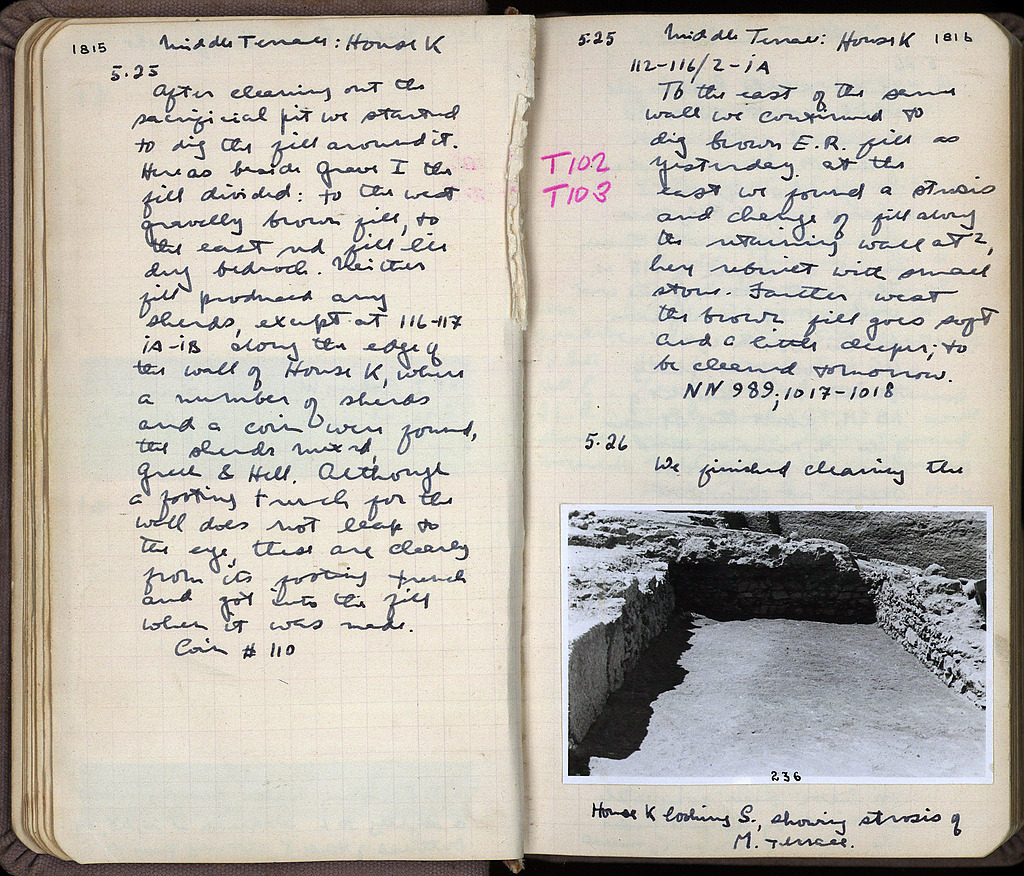 1815 Middle Terrace: House K
5.25
After cleaning out the
sacrificial pit we started
to dig the fill around it.
Here as beside Grave I the
fill divided: to the west
gravelly brown fill, to
the east red fill lie
dug bedrock. Neither
fill produced any
sherds, except at 116-117
iA-iB along the edge of
the wall of House K, where
a number of sherds
and a coin were found,
the sherds mixed,
Greek & Hell. Although
a footing trench for the
wall does not leap to
the eye, these are clearly
from its footing trench
and got into the fill
when it was made.
Coin # 110
5.25 Middle Terrace: House K 1816
112-116/2-iA
To the east of the same
wall we continued to
dig brown E.R. fill as
yesterday. at the
east we found a strosis
and change of fill along
the retaining wall at 2,
here with small
stone. Farther west
the brown fill goes soft
and a little deeper; to
be cleaned tomorrow.
NN 989; 1017-1018
T102
T103
5.26
We finished cleaning the
236
House K looking S., showing strosis of
M. Terrace.